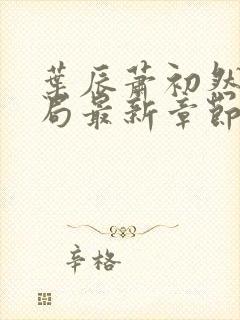 葉辰蕭初然
局最新章節
辛格